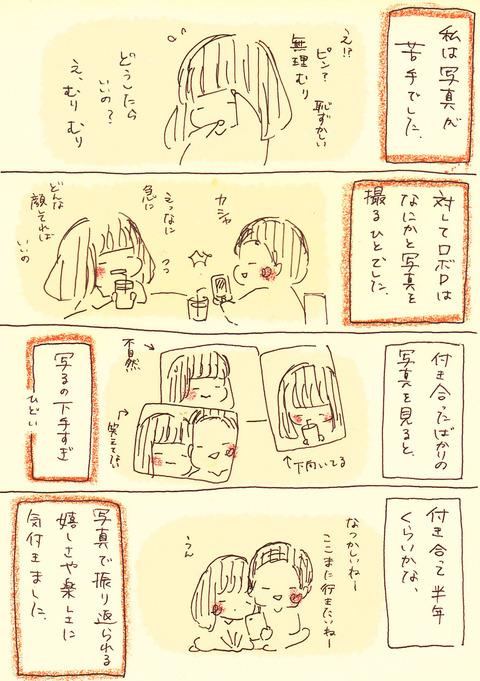 私は写真が
苦手でした。
え!?
ピン?
無理むり
恥ずかしい
どうしたら
いいの?
え、むりむり
対してロボDは
なにかと写真を
撮るひとでした。
カシャ
えっなに
急に
どんな
顔すれば
いいの
付き合ったばかりの
写真を見ると、
不自然
笑えてない
↑下向いてる
写るの下手すぎ
ひどい
付き合って半年
くらいかな、
なつかしいねー
ここまた行きたいねー
うん
写真で振り返られる
嬉しさや楽しさに
気付きました。